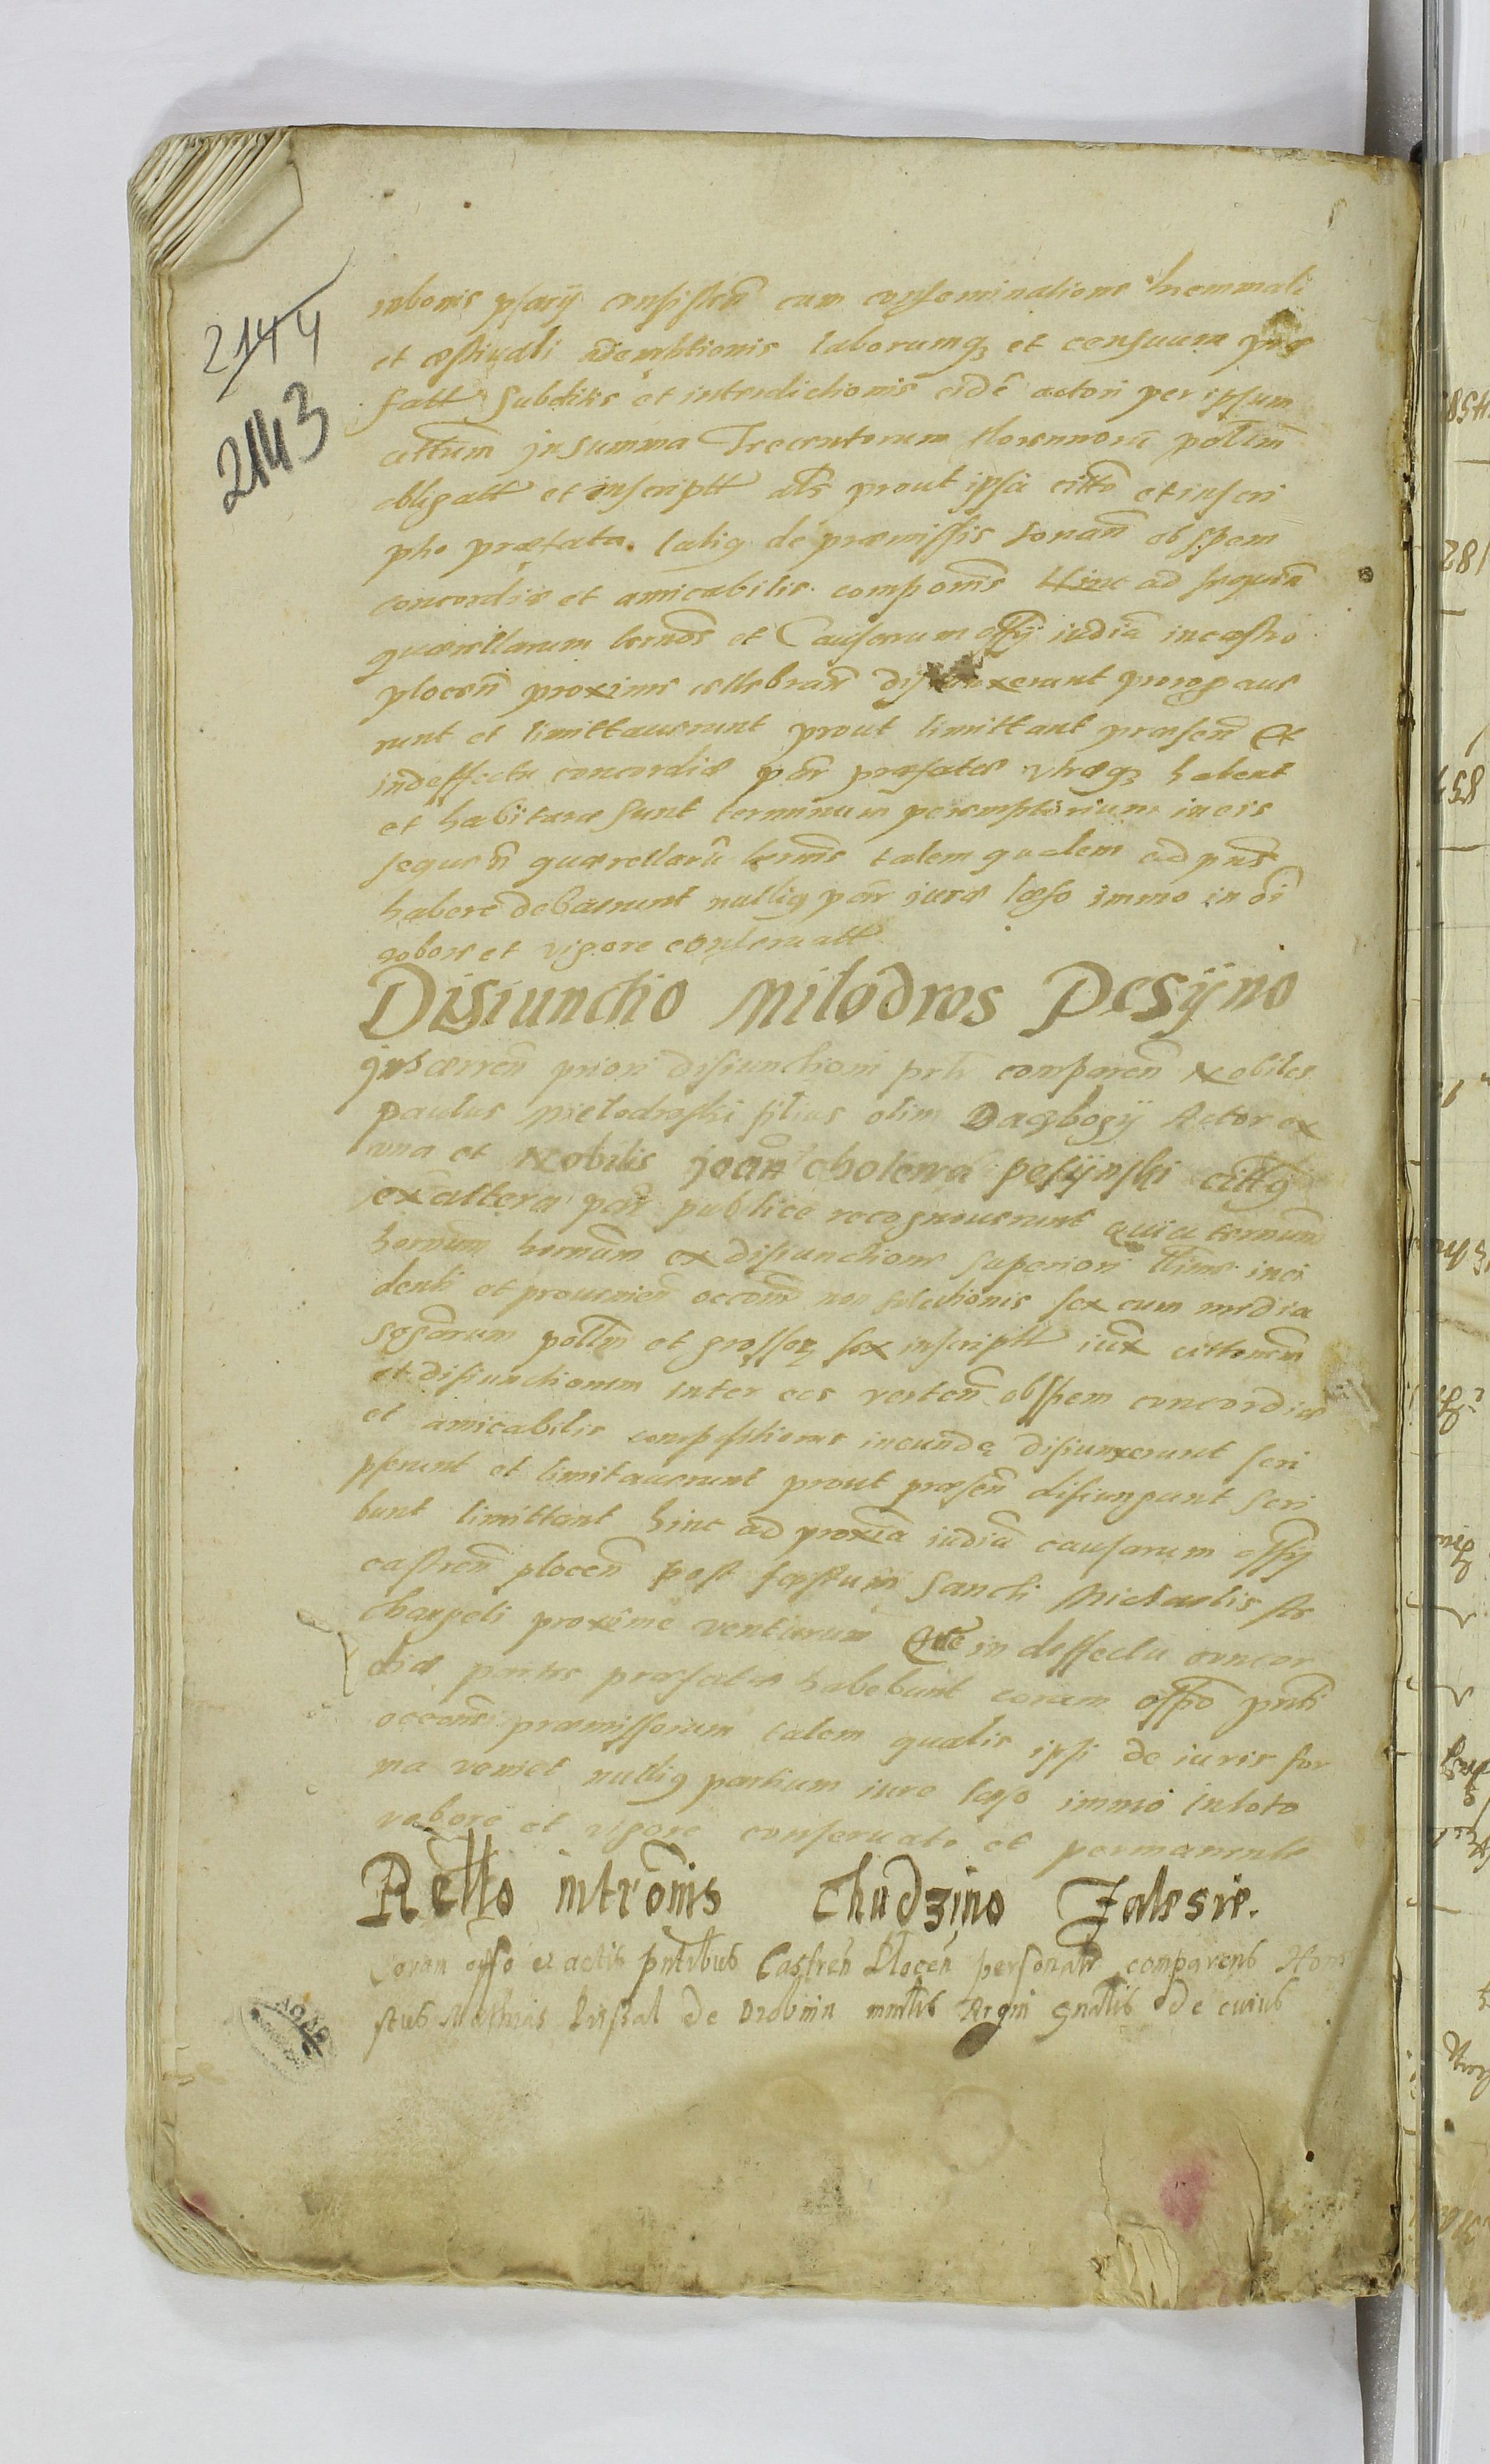 2144
2143
in bonis psarij consisten cum conseminatione hiemmali
et æstiuali ademptionis laborumq et censuum præ
fatt subditis et interdictionis eidē actori per ipsum
cittum in summa Trecentorum florenorū polōn
obligatt et inscriptt als prout ipsa citto et inscri
ptio præfata latiq de præmissis sonañ ob spem
concordiæ et amicabilis componis Hinc ad sequeñ
quærellarum termos et Causarum offij iudicia in castro
plocen proxime cellebrañ disiunxerunt prorogaue
runt et limittauerunt prout limittant præsen Et
in deffectu concordiæ par præfatæ utræq habent
et habituræ sunt terminum peremptorium in eis
sequeñ quærellarū termis talem qualem ad pns
habere debuerunt nulliq par iure læso immo in oi
robore et vigore conseruatt
Disiunctio Milodros Pesÿno
inhærreñ priori disiunctioni prti comparen Nobiles
paulus Mielodroski filius olim Daczbogij Actor ex
una et Nobilis Joañ cholewa pesijnski cittq
ex altera par publice recognouerunt quia terminū
hernum hernum ex disiunctione superiori ltime inci
denti et prouenien occone non solutionis sex cum media
sexgarum polln et grossoz sex inscriptt iuxt cittonem
et disiunctionem inter eos verten ob spem concordiæ
et amicabilis compositionis ineundę disiunxerunt scri
pserunt et limitauerunt prout præsen disiungunt scri
bunt limittant hinc ad proxia iudicia causarum offij
castren plocen post festum Sancti Michaelis Ar
changeli proxime venturum Que in deffectu concor
diæ partes præfatæ habebunt coram offo pnti
occone præmissorum talem qualis ipsi de iuris for
ma veniet nulliq partium iure læso immo in toto
robore et vigore conseruato et permanente
Retto intromis Chudzino Zalesie.
Coram offo et actis pntibus Castren Plocen personalr comparens Hone
stus Mathias Prissal de Drobnin mnlis Regni Gnalis de cuius